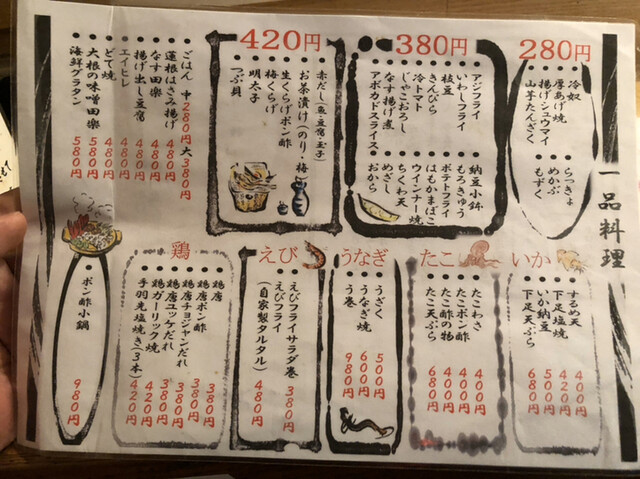 一品料理
280円
冷奴
厚あげ焼
揚げシュウマイ
山芋たんざく
らっきょ
めかぶ
もずく
380円
アジフライ
いわしフライ
枝豆
きんぴら
冷トマト
じゃこおろし
なす揚げ煮
アボカドスライス
納豆小鉢
もろきゅう
ポテトフライ
はもかまぼこ
ウインナー焼
ちくわ天
めざし
おから
420円
赤だし(魚・豆腐・玉子)
お茶漬け(のり・梅)
生くらげポン酢
梅くらげ
明太子
つぶ貝
ごはん 中280円 大380円
蓮根はさみ揚げ 480円
なす田楽 480円
揚げ出し豆腐 480円
エイヒレ 480円
どて焼 480円
大根の味噌田楽 580円
海鮮グラタン 580円
いか
するめ天 400円
下足塩焼 420円
いか納豆 500円
下足天ぷら 680円
たこ
たこわさ 400円
たこポン酢 400円
たこ酢の物 440円
たこ天ぷら 680円
うなぎ
うざく 500円
うなぎ焼 600円
う巻 980円
えび
えびフライサラダ巻 380円
えびフライ
(自家製タルタル) 480円
鶏
鶏唐 380円
鶏唐ポン酢 380円
鶏唐チョジャンだれ 380円
鶏唐ユッケだれ 380円
鶏ガーリック焼 420円
手羽先塩焼き(3本) 420円
ポン酢小鍋 980円